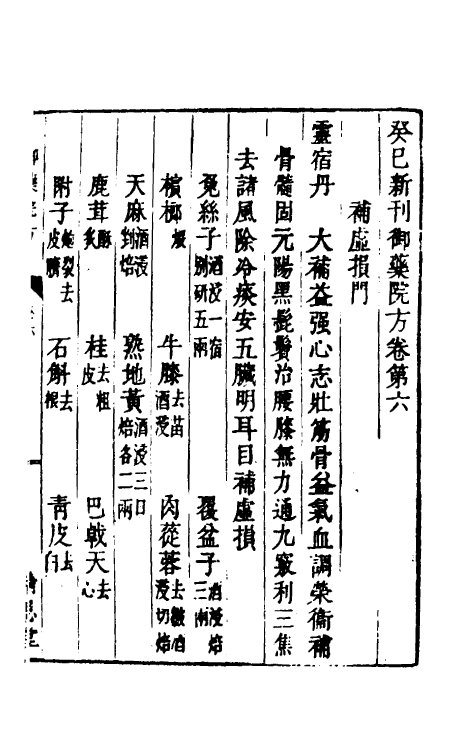 癸巳新刊御藥院方卷第六
補虛損門
靈宿丹 大補益强心志壯筋骨益氣血調榮衛補
骨髓固元陽黑髭鬢治腰膝無力通九竅利三焦
去諸風除冷痰安五臟明耳目補虛損
兔絲子酒浸一宿別研五兩 覆盆子酒浸焙三兩
檳榔煨 牛膝去苗酒浸 肉蓯蓉去皴酒浸切焙
天麻酒浸剉焙 熟地黃酒浸三日焙各二兩
鹿茸酥炙 桂去粗皮 巴戟天去心
附子炮裂去皮臍 石斛去根 青皮去白